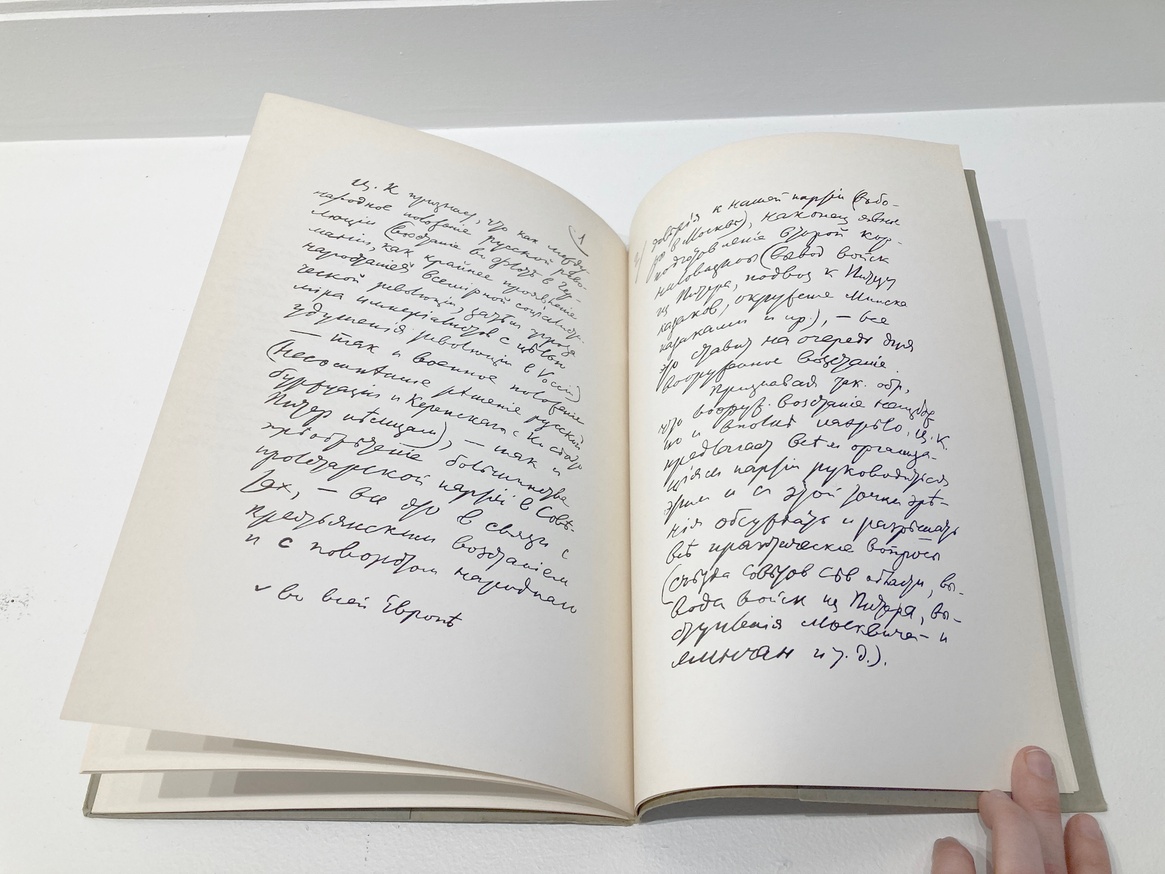 Ц. К признает, что как между-
народное положение русской рево-
люции (возстание во флоте в Гер-
мании, как крайнее проявление
нарастания ✓ всемірной социалисти-
ческой революціи, затем угроза
міра имперіалистов с целью
удушенія революціи в Россіи)
— так и военное положение
(несомненное решение русской
буржуазіи и Керенскаго с Ко сдать
Питер немцам), — так и
пріобретеніе большинства
пролетарской партіей в Сове-
тах, — все это в связи с
крестьянским возстанием
и с поворотом народнаго
✓ во всей Европѣ
1
доверія к нашей партіи (выбо-
ры в Москве), наконец явное
подготовленіе второй кор-
ниловщины (вывод войск
из Питера, подвоз к Питеру
казаков, окружение Минска
казаками и пр.), — все
это ставит на очередь дня
вооруженное возстание.
Признавая так. обр,
что вооруж. возстание неизбеж-
но и вполнѣ назрело, Ц.К
предлагает всѣм организа-
ціям партіи руководиться
этим и с этой точки зрѣ-
нія обсуждать и разрѣшать
всѣ практические вопросы
(съѣзда Совѣтов Сѣв области, вы-
вода войск из Питера, вы-
ступленія москвичей и
минчан и т.д.).